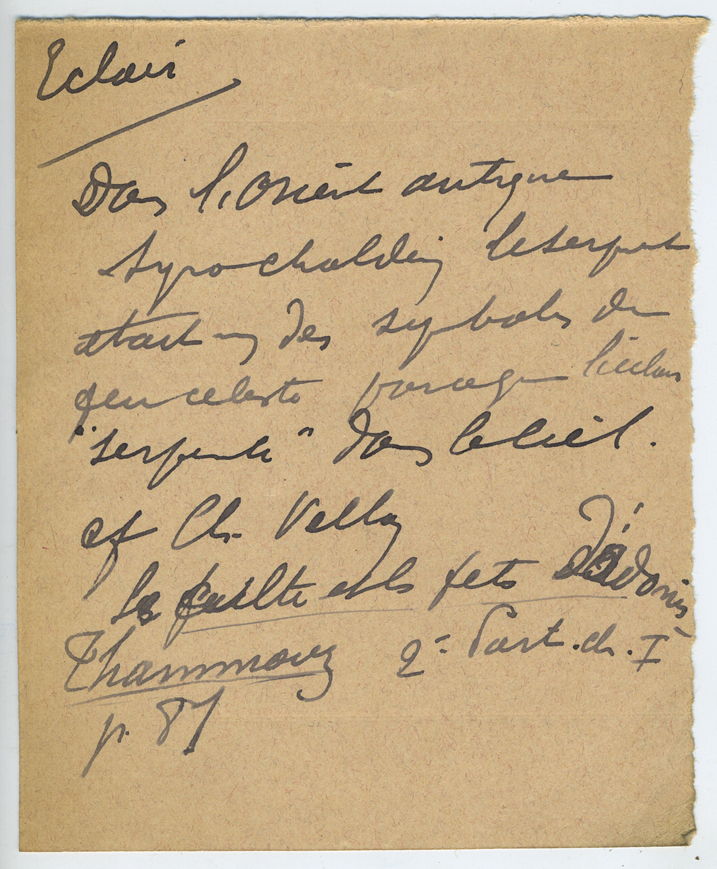 Eclair
Dans l'Orient antique
syrochaldéen le serpent
etait un des symboles du
feu celeste parceque l'éclair
"serpente" dans le ciel.
cf Ch. Vellay
Le culte et les fetes d'Adonis
Thammouz 2e Part. ch. I
p. 87